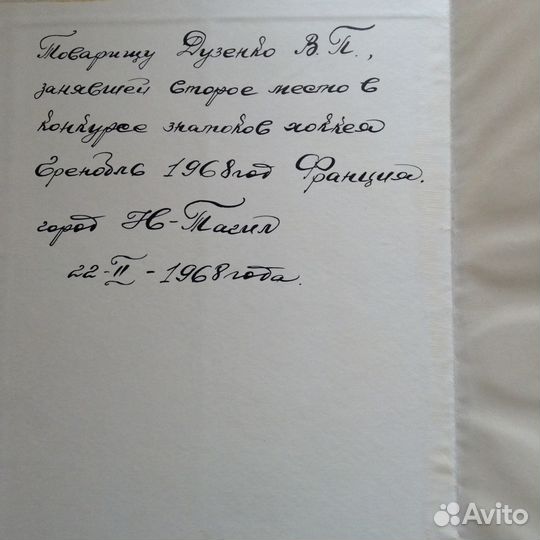 Товарищу Дузенко В. П.,
занявшей второе место в
конкурсе знатоков хоккея
Гренобль 1968 год Франция.
город Н-Тагил
22-II-1968 года.
Avito